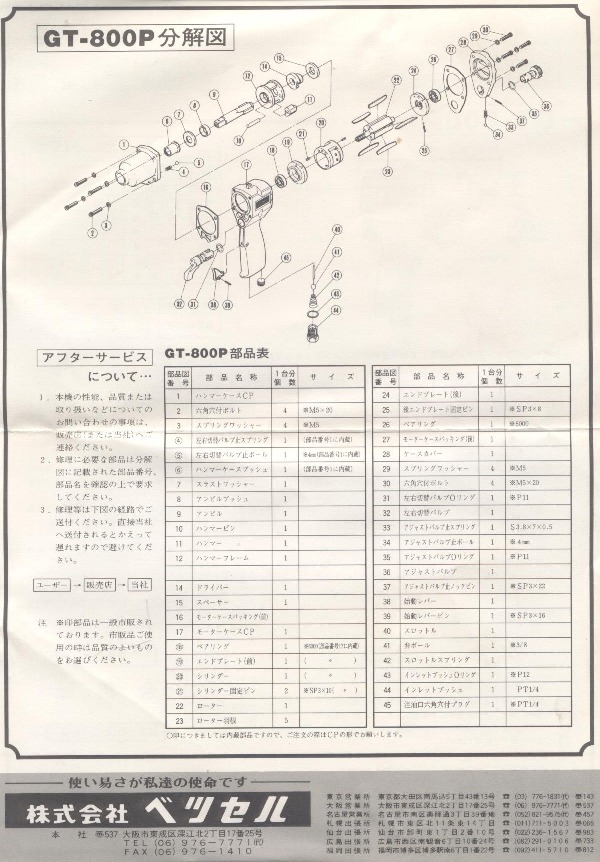 GT-800P 分解図
アフターサービス
について…
1. 本機の性能、品質または
取り扱いなどについての
お問い合わせの事項は、
販売店(または当社)へご
連絡ください。
2. 修理に必要な部品は分解
図に記載された部品番号、
部品名を確認の上で要求
してください。
3. 修理等は下図の経路でご
送付ください。直接当社
へ送付されるとかえって
遅れますので避けてくだ
さい。
ユーザー → 販売店 → 当社
注 ※印部品は一般市販され
ております。市販品ご使
用の時は品質のよいもの
をお選びください。
GT-800P 部品表
部品図番号 部品名称 1台分個数 サイズ
1 ハンマーケースCP 1
2 六角穴付ボルト 4 ※M5×20
3 スプリングワッシャー 4 ※M5
④ 左右切替バルブ止スプリング 1 (部品番号1に内蔵)
⑤ 左右切替バルブ止ボール 1 ※4mm(部品番号1に内蔵)
⑥ ハンマーケースブッシュ 1 (部品番号1に内蔵)
7 スラストワッシャー 1
8 アンビルブッシュ 1
9 アンビル 1
10 ハンマーピン 1
11 ハンマー 1
12 ハンマーフレーム 1
14 ドライバー 1
15 スペーサー 1
16 モーターケースパッキング(前)
17 モーターケースCP 1
⑱ ベアリング 1
⑲ エンドプレート(前) 1 ( 〃 )
⑳ シリンダー 1 ( 〃 )
㉑ シリンダー固定ピン 2 ※SP3×10( 〃 )
22 ローター 1
23 ローター羽根 5
部品図番号 部品名称 1台分個数 サイズ
24 エンドプレート(後) 1
25 後エンドプレート固定ピン 1 ※SP3×8
26 ベアリング 1 ※6000
27 モーターケースパッキング(後) 1
28 ケースカバー 1
29 スプリングワッシャー 4 ※M5
30 六角穴付ボルト 4 ※M5×20
31 左右切替バルブOリング 1 ※P11
32 左右切替バルブ 1
33 アジャストバルブ止スプリング 1 S3.8×7×0.5
34 アジャストバルブ止ボール 1 ※4mm
35 アジャストバルブOリング 1 ※P11
36 アジャストバルブ 1
37 アジャストバルブ止ノックピン 1 ※SP3×22
38 始動レバー 1
39 始動レバーピン 1 ※SP3×16
40 スロットル 1
41 弁ボール 1 ※3/8
42 スロットルスプリング 1
43 インレットブッシュOリング 1 ※P12
44 インレットブッシュ 1 PT1/4
45 注油口六角穴付プラグ 1 ※PT1/4
○印につきましては内蔵部品ですので、ご注文の際はCPの形でお願いします。
使い易さが私達の使命です
株式会社 ベッセル
本社 〒537 大阪市東成区深江北2丁目17番25号
TEL (06) 976-7771(代)
FAX (06) 976-1410
東京営業所 東京都大田区南馬込5丁目43番13号 ☎ (03) 776-1831(代) 〒143
大阪営業所 大阪市東成区深江北2丁目17番25号 ☎ (06) 976-7771(代) 〒537
名古屋営業所 ☎ (052) 821-9575(代) 〒457
札幌出張所 札幌市東区北11条東14丁目 ☎ (011) 711-5003 〒065
仙台出張所 ☎ (022) 236-1567 〒983
広島出張所 ☎ (082) 291-0106 〒733
福岡出張所 ☎ (092) 411-5710 〒812